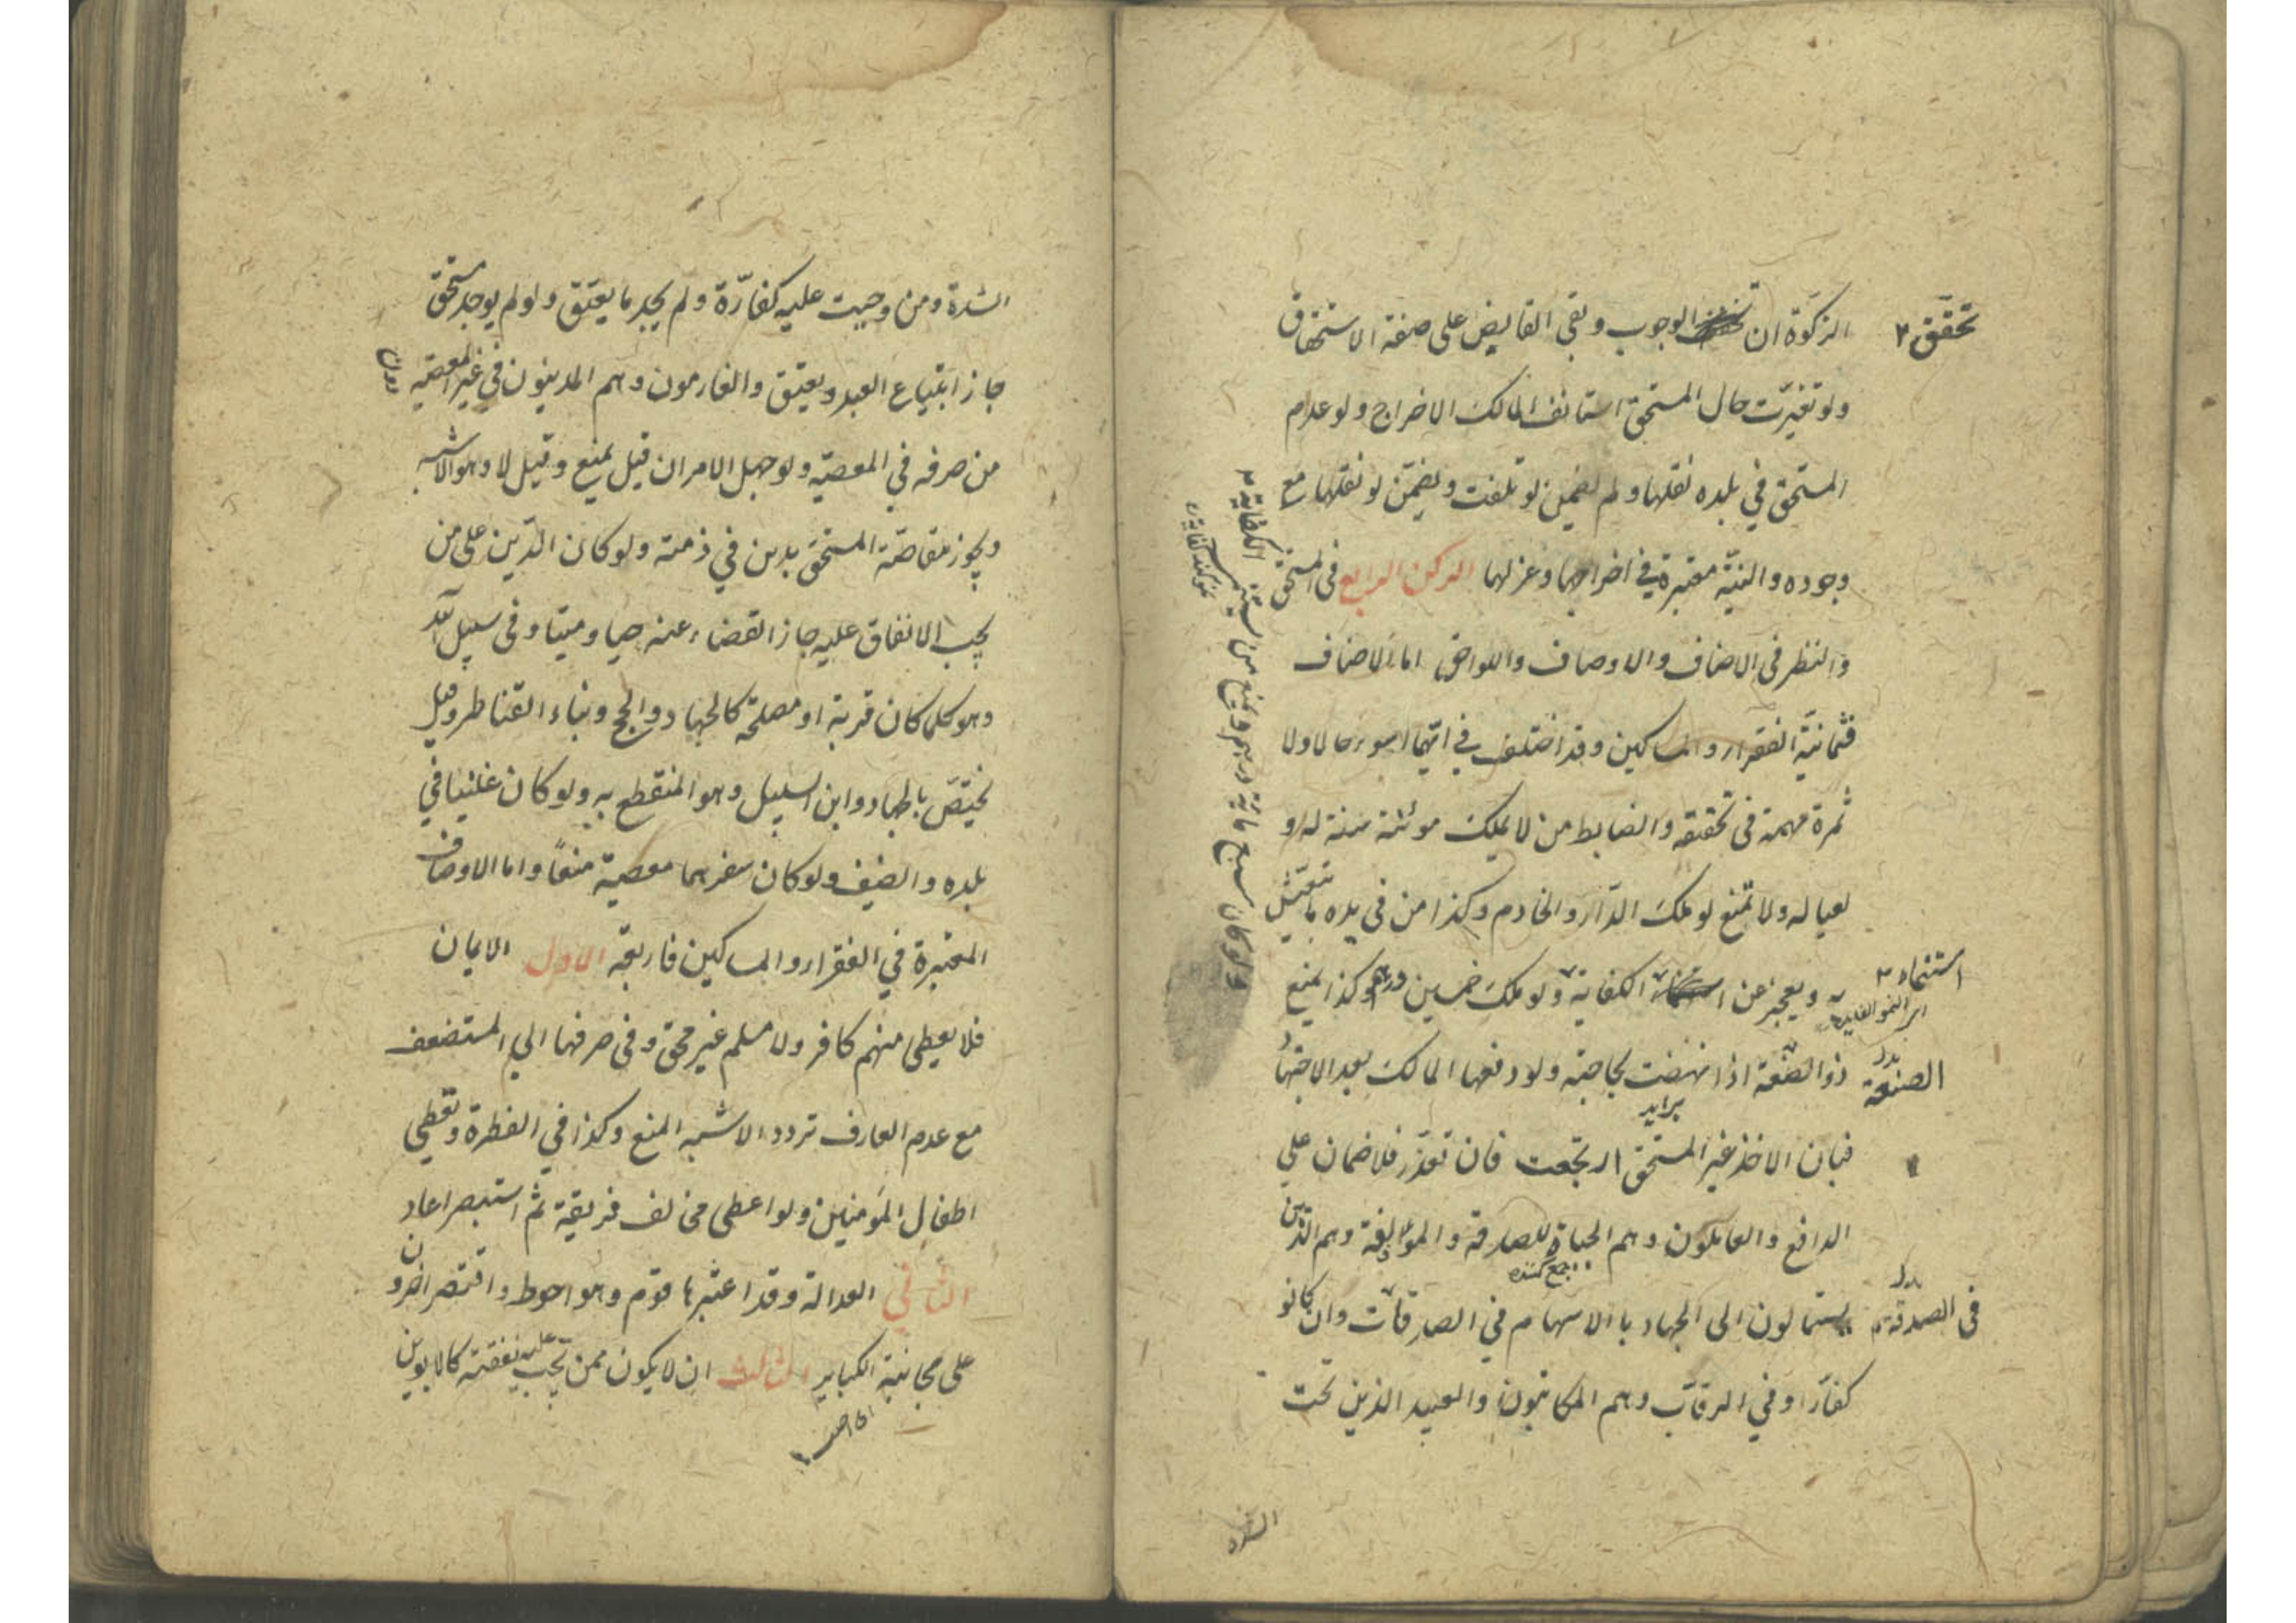 الزكوة ان الوجوب وبقى القابض على صفة الاستحقاق
تحقق
ولو تغيرت حال المستحق استانف المالك الاخراج ولو عدم
المستحق في بلده نقلها ولم يضمن لو تلفت ويضمن لو نقلها مع
وجوده والنية معتبرة في اخراجها وعزلها الركن الرابع في المستحق
والنظر في الاصناف والاوصاف واللواحق اما الاصناف
فثمانية الفقراء والمساكين وقد اختلف في ايهما اسوء حالا ولا
ثمرة مهمة في تحقيقه والضابط من لا يملك مؤنة سنة له و
لعياله ولا تمنع لو ملك الدار والخادم وكذا من في يده ما يتعيش
به ويعجز عن الكفاية ولو ملك خمسين درهم وكذا يمنع
استنماء
ذو الصنعة اذا نهضت بحاجته ولو دفعها المالك بعد الاجتهاد
الصنعة بدل
فبان الاخذ غير المستحق ارتجعت فان تعذر فلا ضمان على
الدافع والعاملون وهم الجباة للصدقة والمؤلفة وهم الذين
جمع كننده
يستمالون الى الجهاد بالاسهام في الصدقات وان كانوا
في الصدقة بدل
كفارا وفي الرقاب وهم المكاتبون والعبيد الذين تحت
الشدة
الشدة ومن وجبت عليه كفارة ولم يجد ما يعتق ولو لم يوجد مستحق
جاز ابتياع العبد ويعتق والغارمون وهم المدينون في غير المعصية
من صرفه في المعصية ولو جهل الامران قيل يمنع وقيل لا وهو الاشبه
ويجوز مقاصة المستحق بدين في ذمته ولو كان الدين على من
يجب الانفاق عليه جاز القضاء عنه حيا وميتا وفي سبيل الله
وهو كلما كان قربة او مصلحة كالجهاد والحج وبناء القناطر وقيل
يختص بالجهاد وابن السبيل وهو المنقطع به ولو كان غنيا في
بلده والضيف ولو كان سفرهما معصية منعا واما الاوصاف
المعتبرة في الفقراء والمساكين فاربعة الاول الايمان
فلا يعطى منهم كافر ولا مسلم غير محق وفي صرفها الى المستضعف
مع عدم العارف تردد الاشبه المنع وكذا في الفطرة وتعطى
اطفال المؤمنين ولو اعطى مخالف فريقه ثم استبصر اعاد
الثاني العدالة وقد اعتبرها قوم وهو احوط واقتصر اخرون
على مجانبة الكباير الثالث ان لا يكون ممن تجب عليه نفقته كالابوين